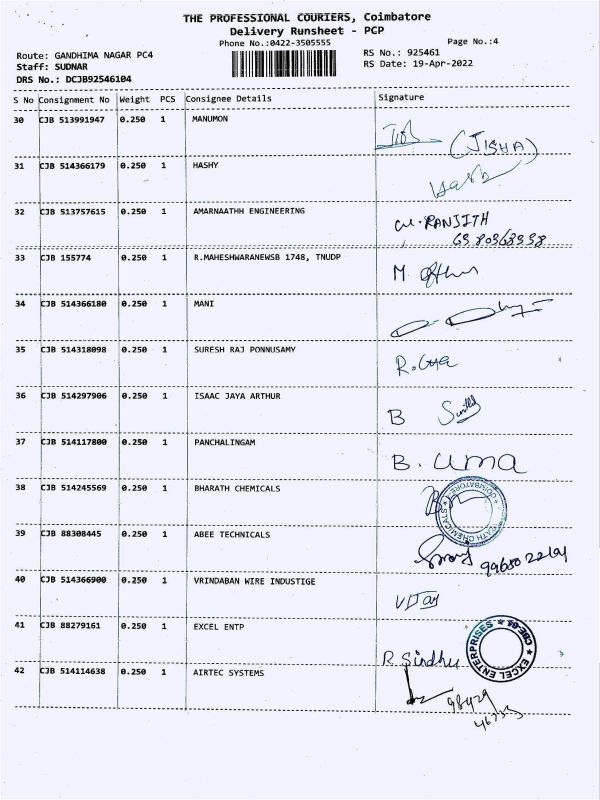 THE PROFESSIONAL COURIERS, Coimbatore
Delivery Runsheet - PCP
Phone No.:0422-3505555
Page No.:4
Route: GANDHIMA NAGAR PC4
RS No.: 925461
Staff: SUDNAR
RS Date: 19-Apr-2022
DRS No.: DCJB92546104
S No Consignment No Weight PCS Consignee Details Signature
30 CJB 513991947 0.250 1 MANUMON
(JISHA)
31 CJB 514366179 0.250 1 HASHY
32 CJB 513757615 0.250 1 AMARNAATHH ENGINEERING
RANJITH
33 CJB 155774 0.250 1 R.MAHESHWARANEWSB 1748, TNUDP
M.
34 CJB 514366180 0.250 1 MANI
35 CJB 514318098 0.250 1 SURESH RAJ PONNUSAMY
36 CJB 514297906 0.250 1 ISAAC JAYA ARTHUR
B
37 CJB 514117800 0.250 1 PANCHALINGAM
B. uma
38 CJB 514245569 0.250 1 BHARATH CHEMICALS
39 CJB 88308445 0.250 1 ABEE TECHNICALS
40 CJB 514366900 0.250 1 VRINDABAN WIRE INDUSTIGE
VIJay
41 CJB 88279161 0.250 1 EXCEL ENTP
R. Sindhu
★ EXCEL ENTERPRISES ★ CBE-64
42 CJB 514114638 0.250 1 AIRTEC SYSTEMS
98429